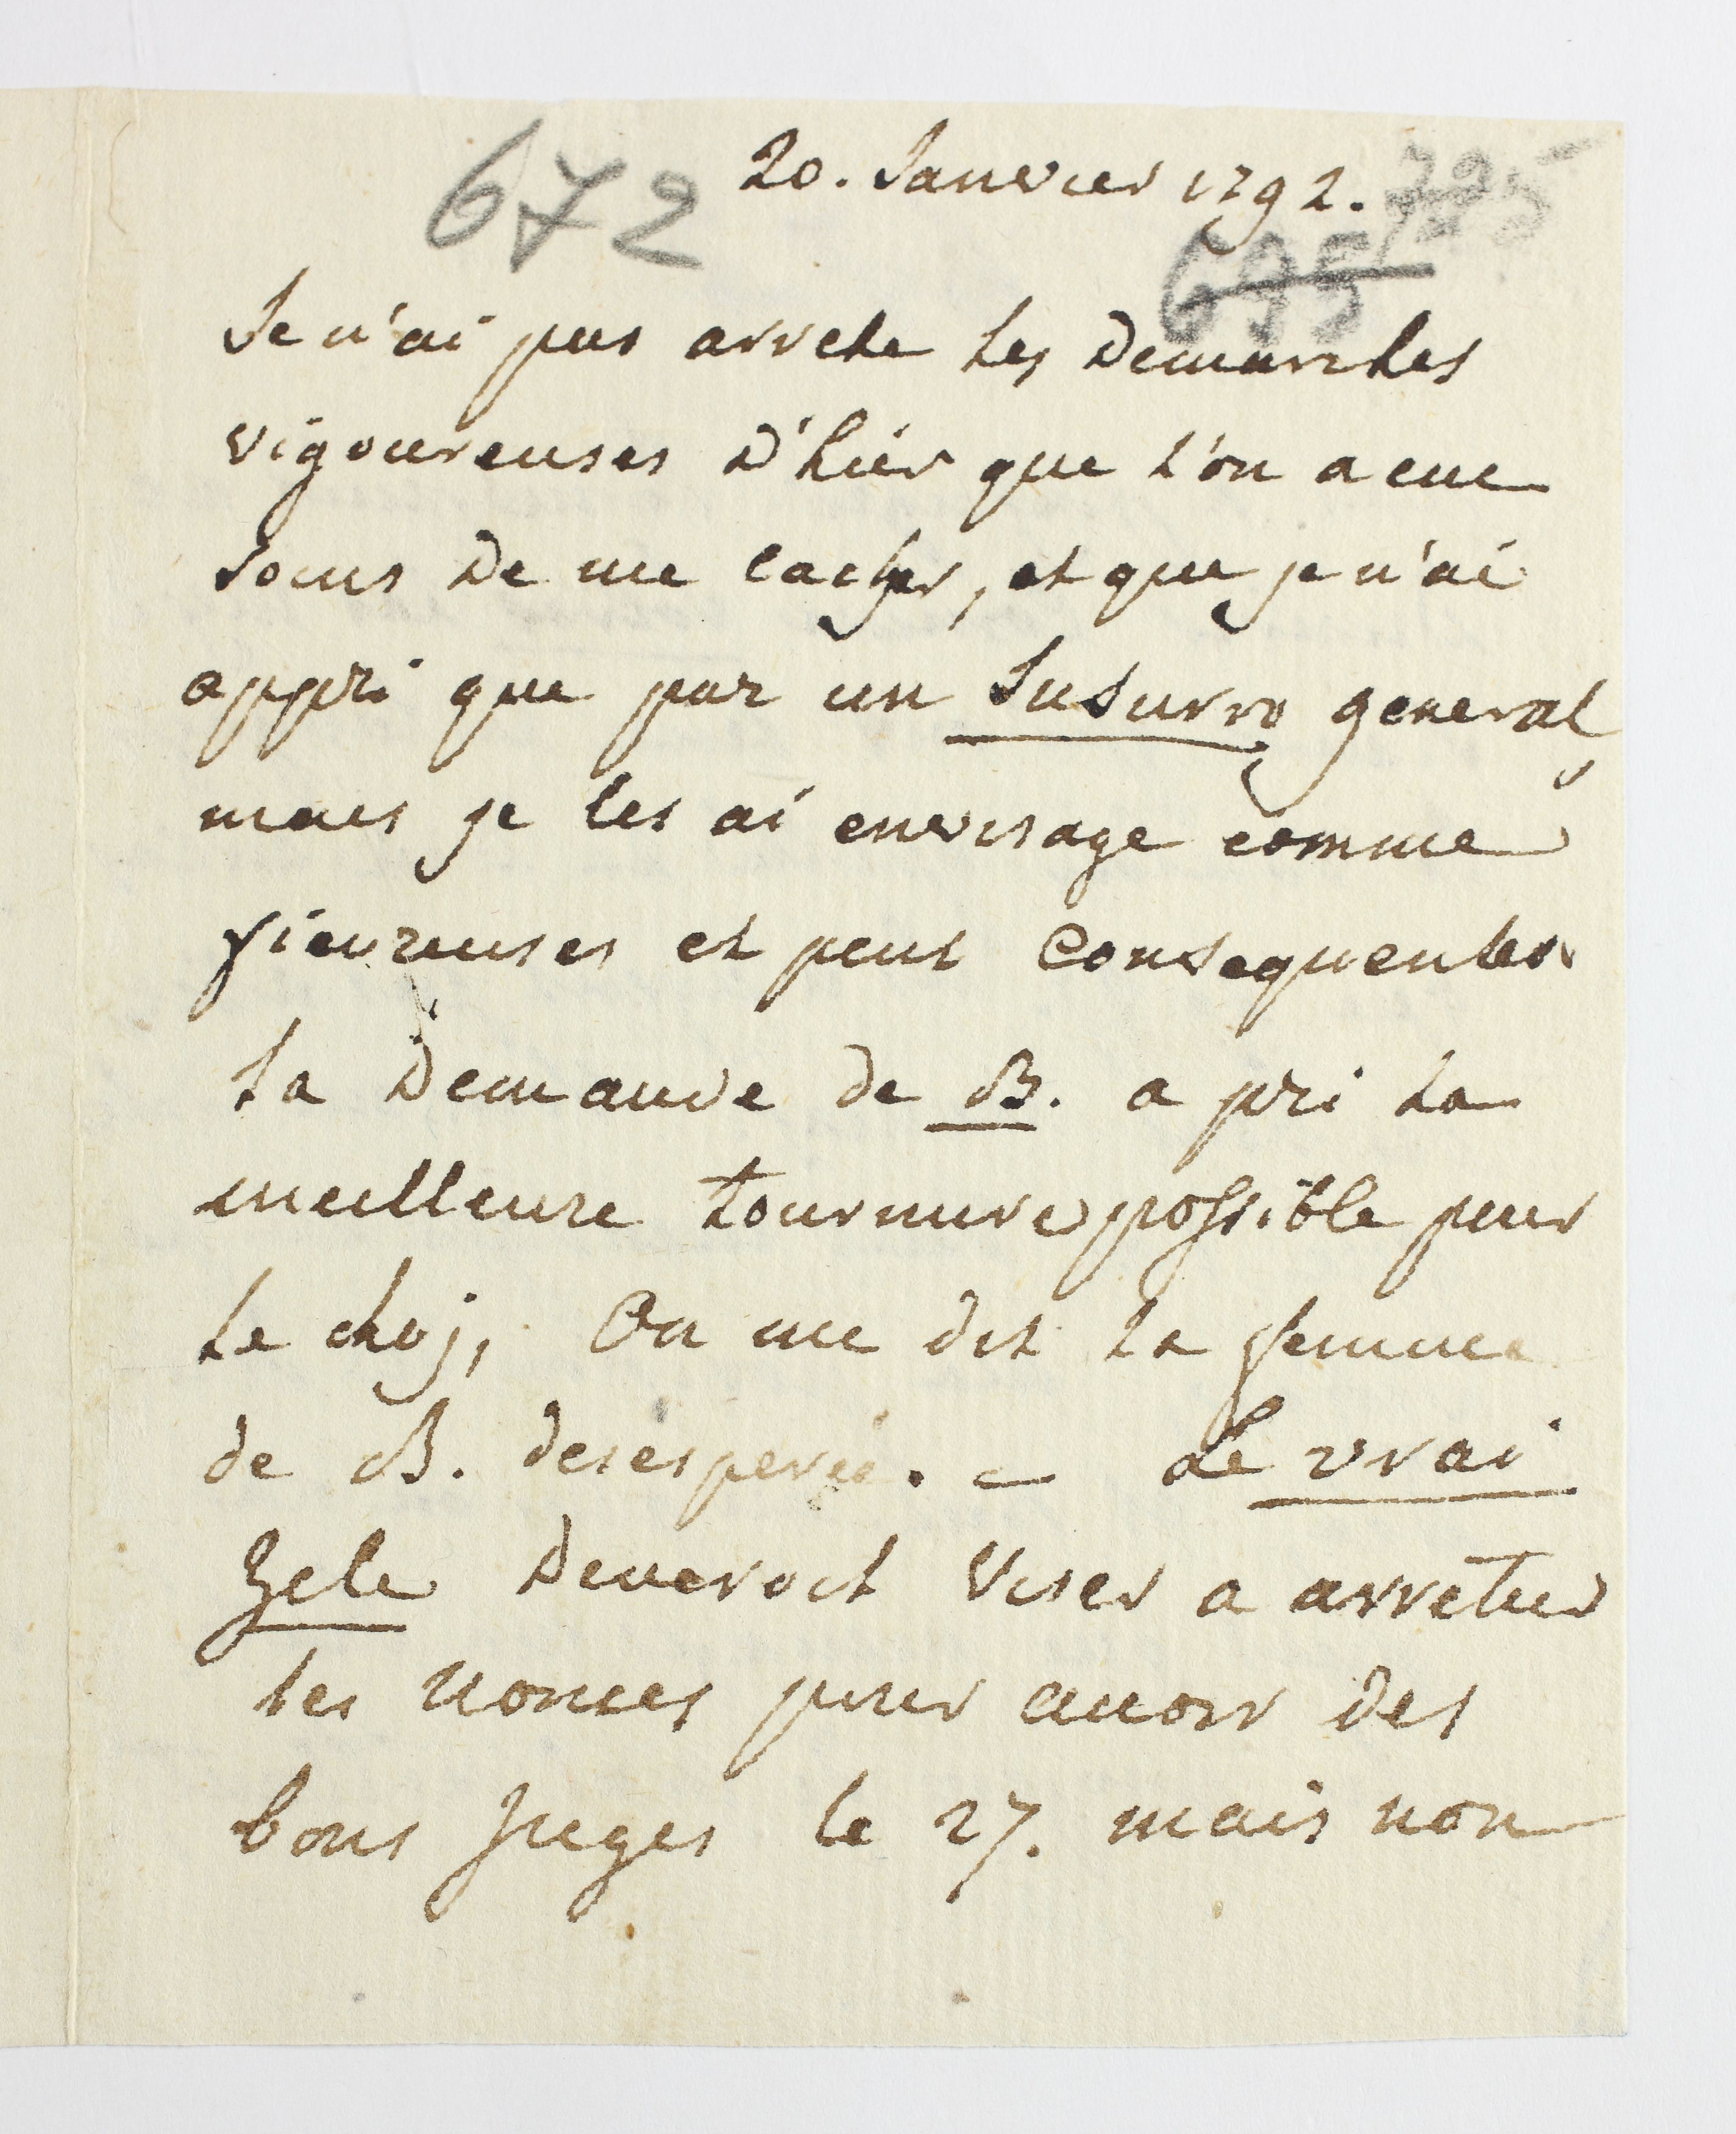 672 20. Janvier 1792. 725
695
Je n'ai pas arrete les Demarches
vigoureuses D'hier que l'on a eue
soins De me cacher, et que je n'ai
appri que par un Susurro general
mais je les ai envisage comme
fievreuses et peut consequentes
la Demande de B. a pri la
meilleure tournure possible pour
le choj, On me dit la femme
de B. desesperée. – Le vrai
Zele Deveroit viser a arreter
les nonces pour avoir des
bons Juges le 27. mais non